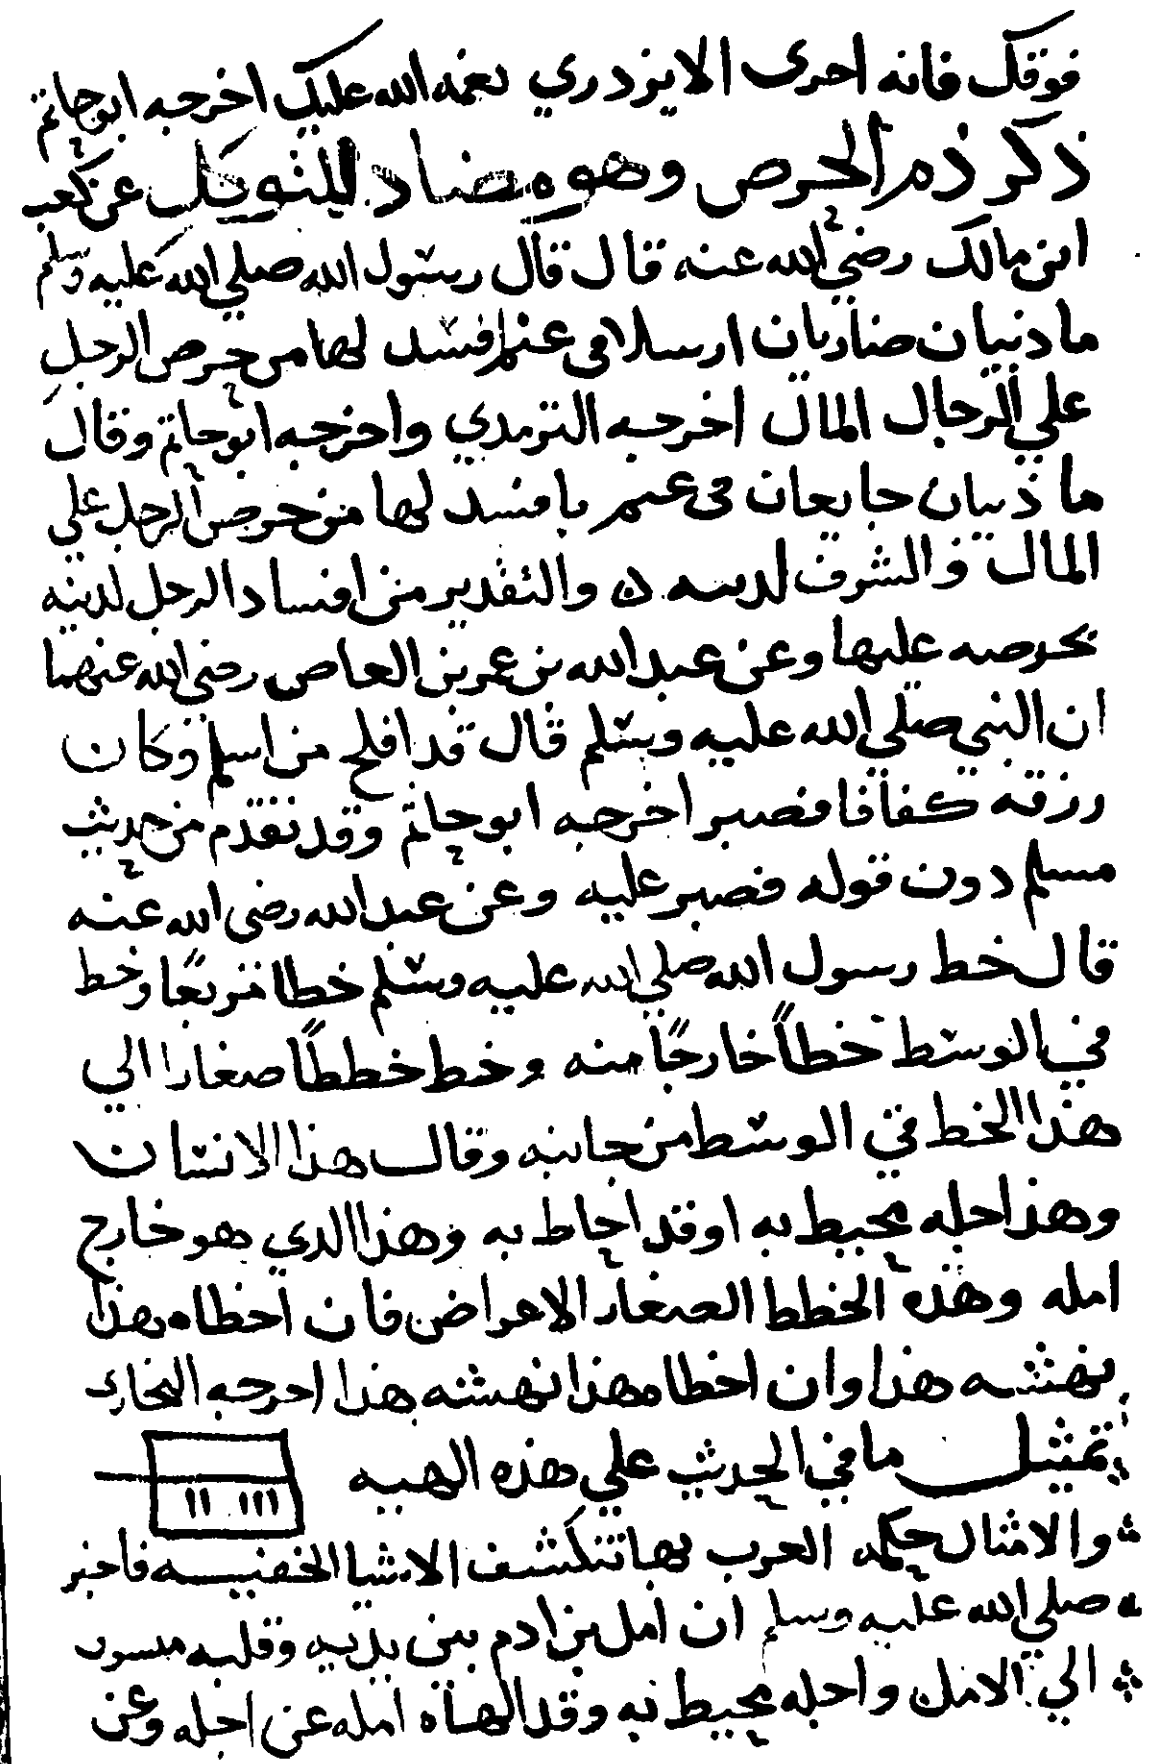 فوقك فانه احرى الا يزدري نعمه الله عليك اخرجه ابو حاتم
ذكر ذم الحرص وهو مضاد للتوكل عن كعب
ابن مالك رضي الله عنه قال قال رسول الله صلي الله عليه وسلم
ما ذئبان ضاريان ارسلا في غنم افسد لها من حرص الرجل
علي الرجال المال اخرجه الترمدي واخرجه ابو حاتم وقال
ما ذيبان جايعان في غنم بافسد لها من حرص الرجل علي
المال والشرف لدينه ه والتقدير من افساد الرجل لدينه
بحرصه عليها وعن عبد الله بن عمر بن العاص رضي الله عنهما
ان النبي صلي الله عليه وسلم قال قد افلح من اسلم وكان
رزقه كفافا فصبر اخرجه ابو حاتم وقد تقدم من حديث
مسلم دون قوله فصبر عليه وعن عبد الله رضي الله عنه
قال خط رسول الله صلي الله عليه وسلم خطا مربعًا وخط
في الوسط خطاً خارجًا منه وخط خططًا صغارا الي
هذا الخط في الوسط من جانبه وقال هذا الانسان
وهذا اجله محيط به او قد احاط به وهذا الدي هو خارج
امله وهذه الخطط الصغار الاعراض فان اخطاه هذا
نهشه هذا وان اخطاه هذا نهشه هذا اخرجه البخاري
تمثيل ما في الحديث علي هذه الهيه
والامثال حكمه العرب بها تتكشف الاشيا الخفيه فاخبر
صلي الله عليه وسلم ان امل بن ادم بين يديه وقلبه
الي الامل واجله محيط به وقد الهاه امله عن اجله وعن